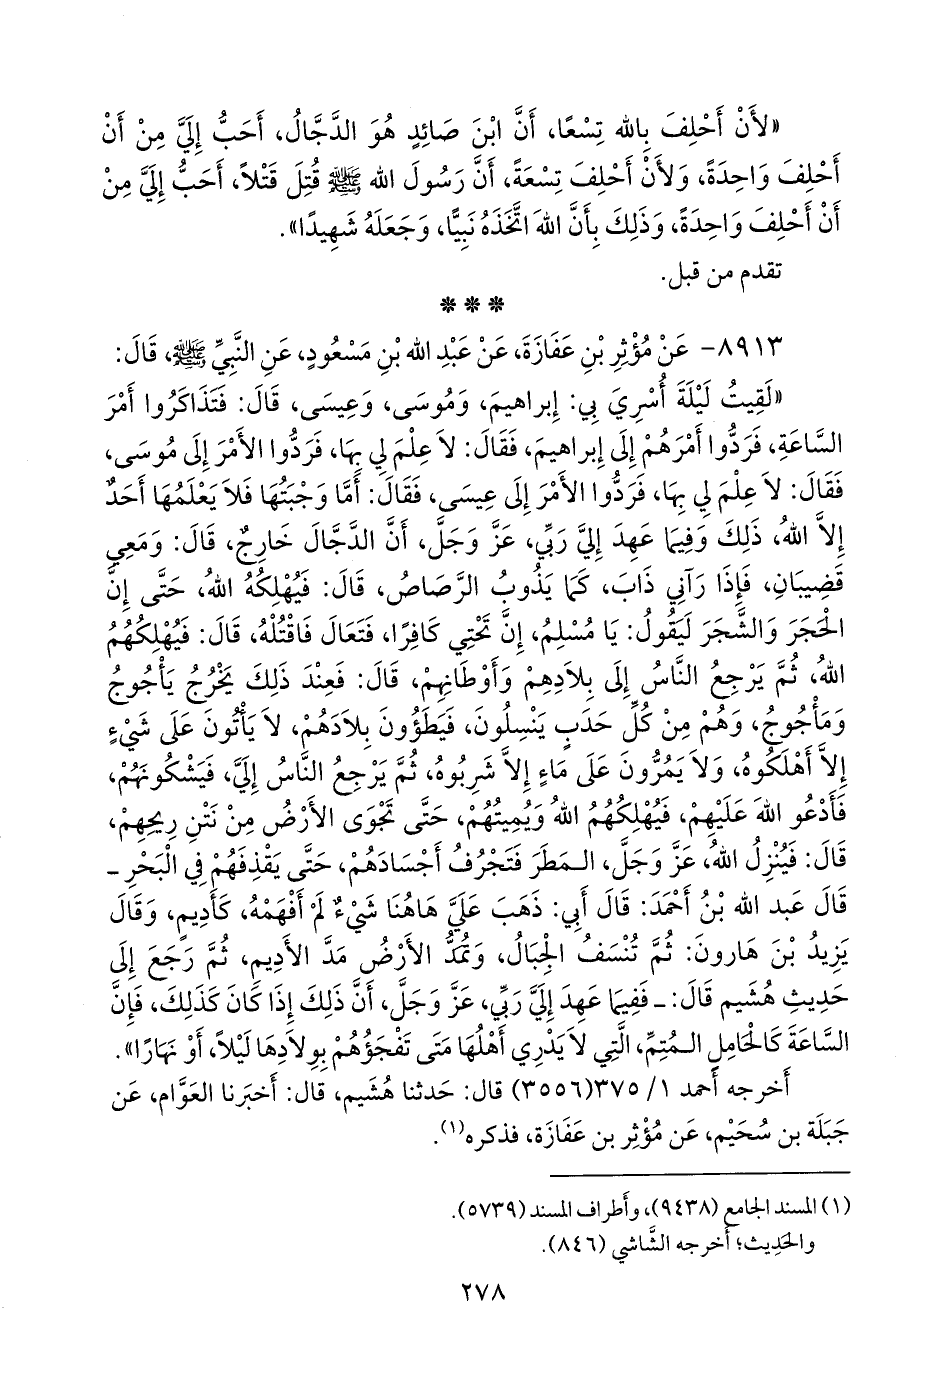 «لأَنْ أَحْلِفَ بِالله تِسْعًا، أَنَّ ابْنَ صَائِدٍ هُوَ الدَّجَّالُ، أَحَبُّ إِلَيَّ مِنْ أَنْ
أَحْلِفَ وَاحِدَةً، وَلأَنْ أَحْلِفَ تِسْعَةً، أَنَّ رَسُولَ الله ﷺ قُتِلَ قَتْلاً، أَحَبُّ إِلَيَّ مِنْ
أَنْ أَحْلِفَ وَاحِدَةً، وَذَلِكَ بِأَنَّ اللهَ اتَّخَذَهُ نَبِيًّا، وَجَعَلَهُ شَهِيدًا».
تقدم من قبل.
* * *
٨٩١٣- عَنْ مُؤْثِرِ بْنِ عَفَازَةَ، عَنْ عَبْدِ الله بْنِ مَسْعُودٍ، عَنِ النَّبِيِّ ﷺ، قَالَ:
«لَقِيتُ لَيْلَةَ أُسْرِيَ بِي: إبراهيمَ، وَمُوسَى، وَعِيسَى، قَالَ: فَتَذَاكَرُوا أَمْرَ
السَّاعَةِ، فَرَدُّوا أَمْرَهُمْ إِلَى إبراهيمَ، فَقَالَ: لاَ عِلْمَ لِي بِهَا، فَرَدُّوا الأَمْرَ إِلَى مُوسَى،
فَقَالَ: لاَ عِلْمَ لِي بِهَا، فَرَدُّوا الأَمْرَ إِلَى عِيسَى، فَقَالَ: أَمَّا وَجْبَتُهَا فَلاَ يَعْلَمُهَا أَحَدٌ
إِلاَّ اللهُ، ذَلِكَ وَفِيمَا عَهِدَ إِلَيَّ رَبِّي، عَزَّ وَجَلَّ، أَنَّ الدَّجَّالَ خَارِجٌ، قَالَ: وَمَعِي
قَضِيبَانِ، فَإِذَا رَآنِي ذَابَ، كَمَا يَذُوبُ الرَّصَاصُ، قَالَ: فَيُهْلِكُهُ اللهُ، حَتَّى إِنَّ
الْحَجَرَ وَالشَّجَرَ لَيَقُولُ: يَا مُسْلِمُ، إِنَّ تَحْتِي كَافِرًا، فَتَعَالَ فَاقْتُلْهُ، قَالَ: فَيُهْلِكُهُمُ
اللهُ، ثُمَّ يَرْجِعُ النَّاسُ إِلَى بِلاَدِهِمْ وَأَوْطَانِهِمْ، قَالَ: فَعِنْدَ ذَلِكَ يَخْرُجُ يَأْجُوجُ
وَمَأْجُوجُ، وَهُمْ مِنْ كُلِّ حَدَبٍ يَنْسِلُونَ، فَيَطَؤُونَ بِلاَدَهُمْ، لاَ يَأْتُونَ عَلَى شَيْءٍ
إِلاَّ أَهْلَكُوهُ، وَلاَ يَمُرُّونَ عَلَى مَاءٍ إِلاَّ شَرِبُوهُ، ثُمَّ يَرْجِعُ النَّاسُ إِلَيَّ، فَيَشْكُونَهُمْ،
فَأَدْعُو اللهَ عَلَيْهِمْ، فَيُهْلِكُهُمُ اللهُ وَيُمِيتُهُمْ، حَتَّى تَجْوَى الأَرْضُ مِنْ نَتْنِ رِيحِهِمْ،
قَالَ: فَيُنْزِلُ اللهُ، عَزَّ وَجَلَّ، الْـمَطَرَ فَتَجْرُفُ أَجْسَادَهُمْ، حَتَّى يَقْذِفَهُمْ فِي الْبَحْرِ ـ
قَالَ عَبد الله بْنُ أَحْمَدَ: قَالَ أَبِي: ذَهَبَ عَلَيَّ هَاهُنَا شَيْءٌ لَمْ أَفْهَمْهُ، كَأَدِيمٍ، وَقَالَ
يَزِيدُ بْنَ هَارونَ: ثُمَّ تُنْسَفُ الْجِبَالُ، وَتُمَدُّ الأَرْضُ مَدَّ الأَدِيمِ، ثُمَّ رَجَعَ إِلَى
حَدِيثِ هُشَيمٍ قَالَ: ـ فَفِيمَا عَهِدَ إِلَيَّ رَبِّي، عَزَّ وَجَلَّ، أَنَّ ذَلِكَ إِذَا كَانَ كَذَلِكَ، فَإِنَّ
السَّاعَةَ كَالْحَامِلِ الْـمُتِمِّ، الَّتِي لاَ يَدْرِي أَهْلُهَا مَتَى تَفْجَؤُهُمْ بِوِلاَدِهَا لَيْلاً، أَوْ نَهَارًا».
أَخرجه أَحمد ١/ ٣٧٥(٣٥٥٦) قال: حَدثنا هُشَيم، قال: أَخبَرنا العَوَّام، عَن
جَبَلَة بن سُحَيْم، عَن مُؤْثِر بن عَفَازة، فذكره(١).
(١) المسند الجامع (٩٤٣٨)، وأَطراف المسند (٥٧٣٩).
والحَدِيث؛ أَخرجه الشَّاشي (٨٤٦).
٢٧٨